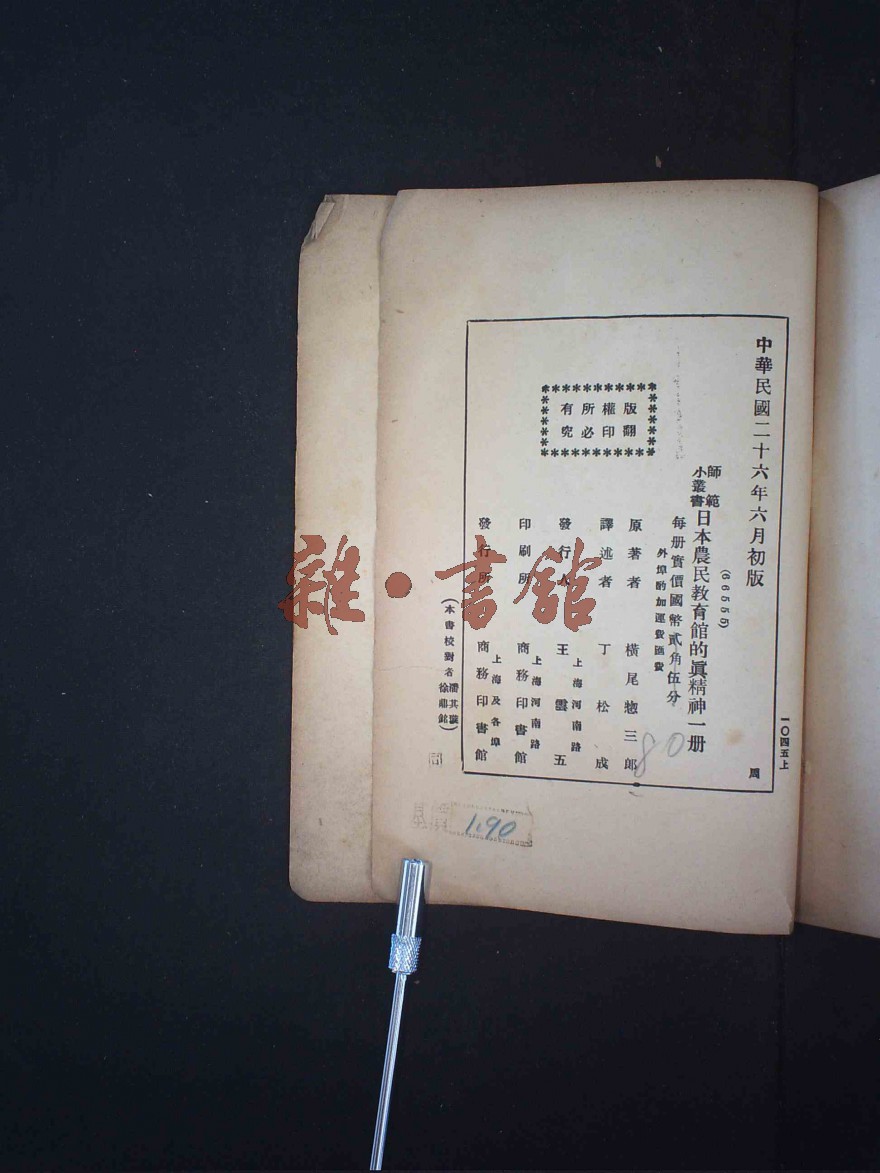 中華民國二十六年六月初版
(66555)
師範小叢書
日本農民教育館的眞精神一册
每册實價國幣貳角伍分
外埠酌加運費匯費
版權所有
翻印必究
原著者 橫尾惣三郎
譯述者 丁松成
發行人 王雲五
上海河南路
印刷所 商務印書館
上海河南路
發行所 商務印書館
上海及各埠
(本書校對者
徐鼎銘)
一〇四五上
周
80
1.90
雜·書館